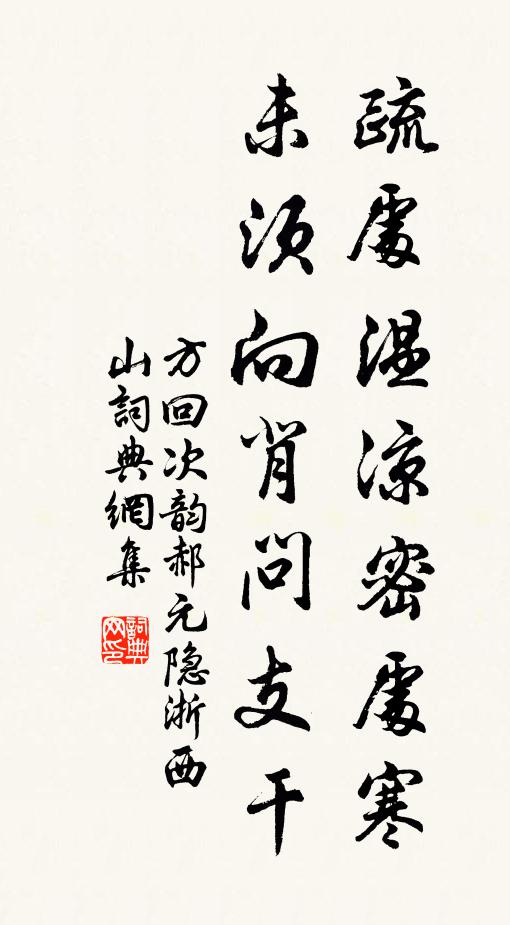 疏處溫涼密處寒
未須向背問支干
方回次韵郝元隐浙西
山詞典網集
詞典
网印